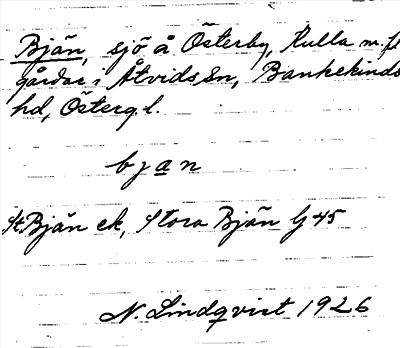 Bjän, sjö å Österby, Kulla m. fl.
gårdar i Åtvids sn, Bankekinds
hd, Österg. l.
bjan
St. Bjän ek, Stora Bjän G 45
N. Lindqvist 1926